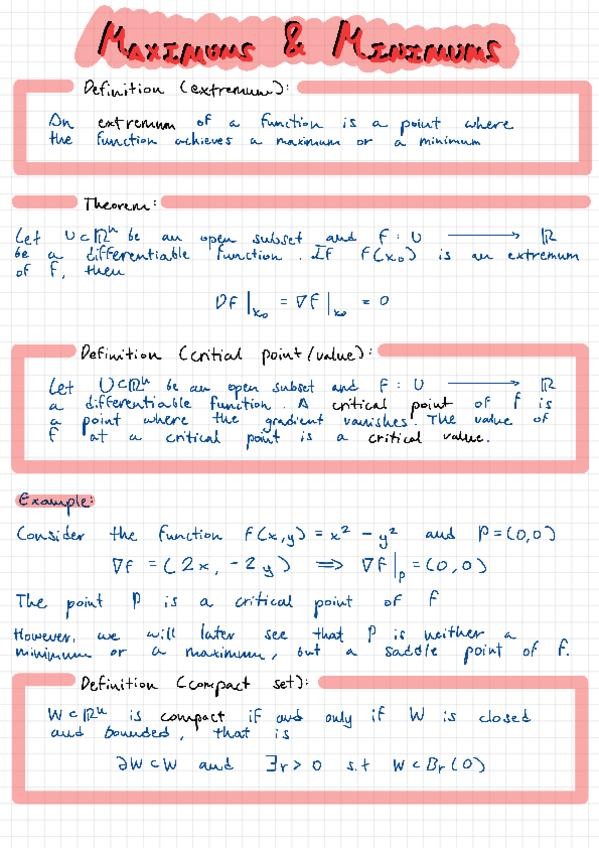 MAXIMUMS & MINIMUMS
Definition (extremum):
An extremum of a function is a point where
the function achieves a maximum or a minimum
Theorem:
Let U⊂ℝⁿ be an open subset and f : U ⟶ ℝ
be a differentiable function. If f(x₀) is an extremum
of f, then
Df|ₓ₀ = ∇f|ₓ₀ = 0
Definition (critical point/value):
Let U⊂ℝⁿ be an open subset and f : U ⟶ ℝ
a differentiable function. A critical point of f is
a point where the gradient vanishes. The value of
f at a critical point is a critical value.
Example:
Consider the function f(x,y) = x² − y² and P=(0,0)
∇f = (2x, −2y) ⟹ ∇f|ₚ = (0,0)
The point P is a critical point of f
However, we will later see that P is neither a
minimum or a maximum, but a saddle point of f.
Definition (compact set):
W⊂ℝⁿ is compact if and only if W is closed
and bounded, that is
∂W⊂W and ∃r>0 s.t W⊂Br(0)